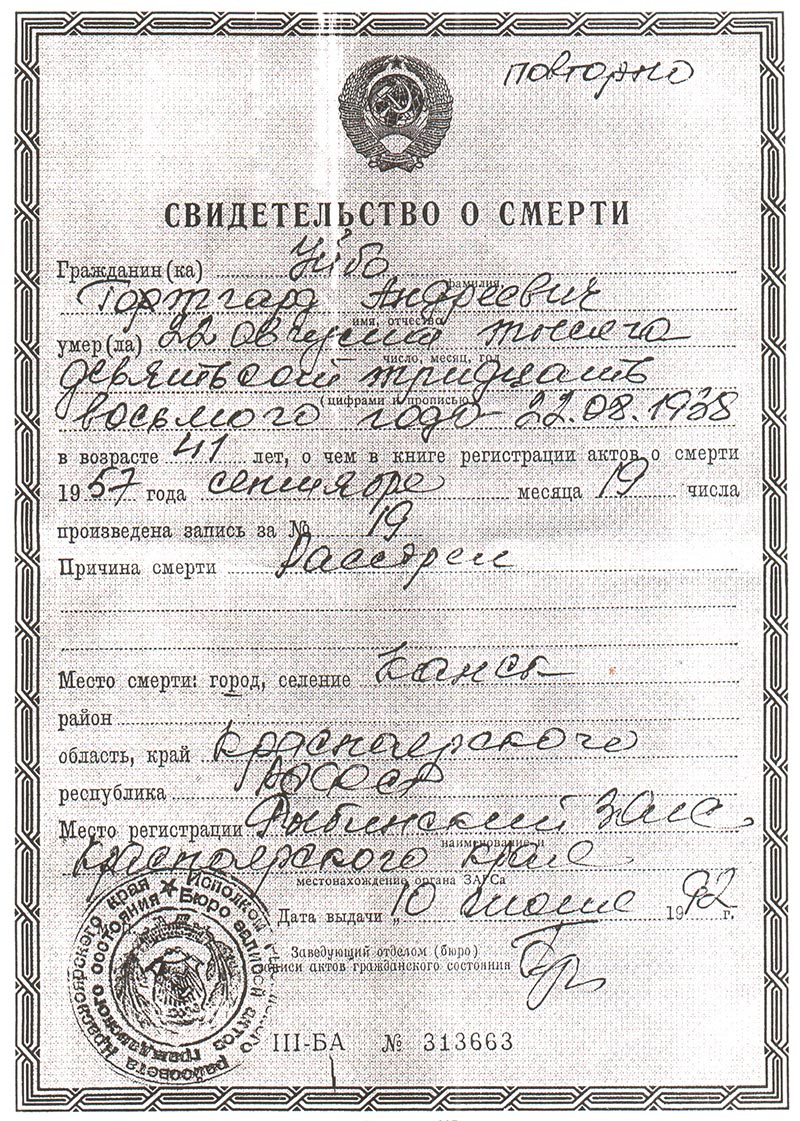 повторно
СВИДЕТЕЛЬСТВО О СМЕРТИ
Гражданин(ка) Уйбо
фамилия,
Андреевич
имя, отчество
умер(ла) 22 августа тысяча
число, месяц, год
девятьсот тридцать
(цифрами и прописью)
восьмого года 22.08.1938
в возрасте 41 лет, о чем в книге регистрации актов о смерти
1957 года сентября месяца 19 числа
произведена запись за № 19
Причина смерти Расстрел
Место смерти: город, селение Канск
район
область, край Красноярского
республика РСФСР
Место регистрации Рыбинский Загс
наименование и
Красноярского края
местонахождение органа ЗАГСа
Дата выдачи „10 1992 г.
Заведующий отделом (бюро)
записи актов гражданского состояния
III-БА № 313663
Исполком райсовета Красноярского края
Бюро записи актов гражданского состояния